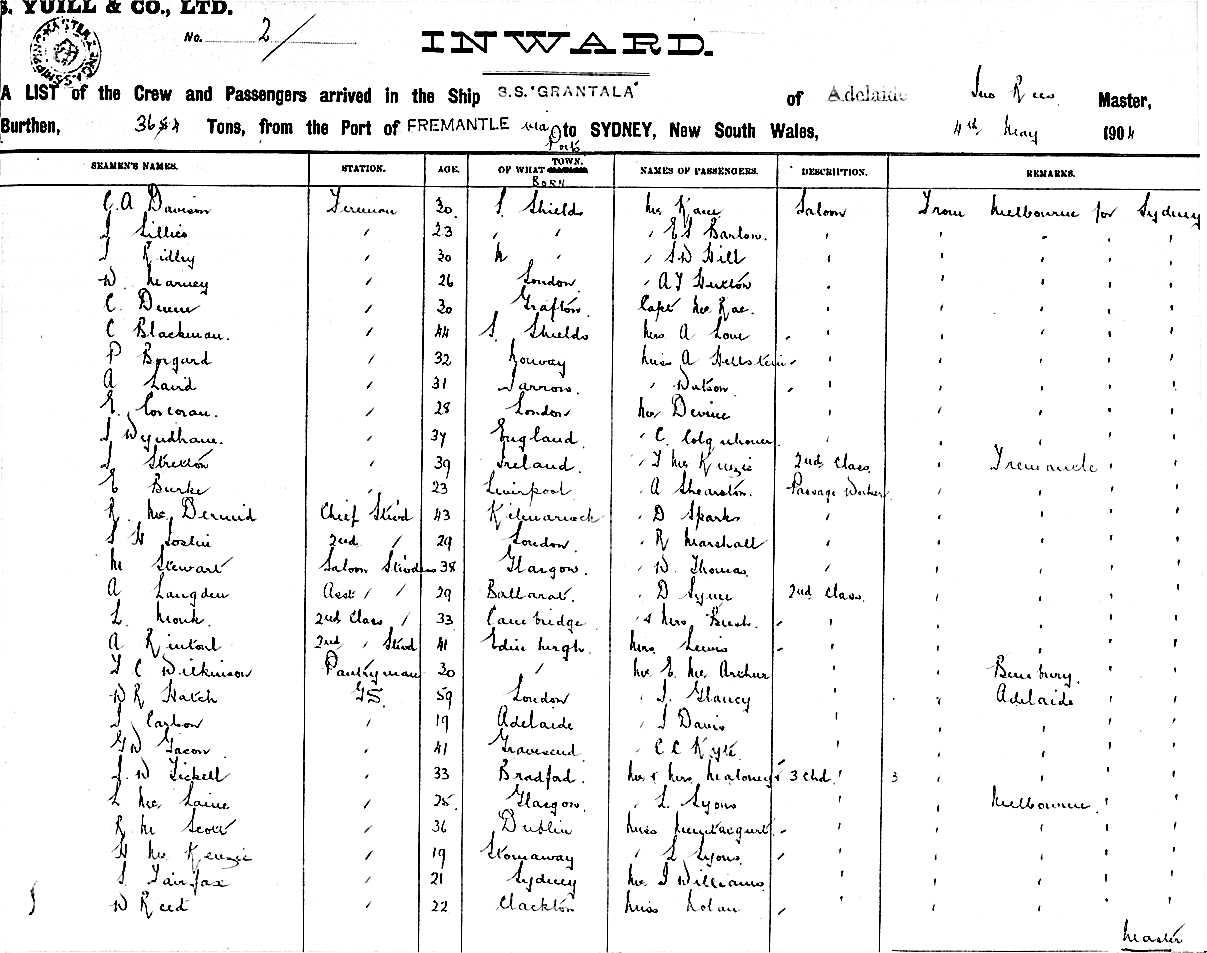 S. YUILL & CO., LTD.
No. 2/
INWARD.
A LIST of the Crew and Passengers arrived in the Ship S.S. "GRANTALA" of Adelaide Jno Rees Master,
Burthen, Tons, from the Port of FREMANTLE via Ports to SYDNEY, New South Wales, 4th May 1904
SEAMEN'S NAMES. STATION. AGE. OF WHAT TOWN. BORN NAMES OF PASSENGERS. DESCRIPTION. REMARKS.
C. A Davison Fireman 30 S. Shields Mr Kane Saloon From Melbourne for Sydney
J Gillies " 23 " " " E S Barlow. " " " " "
J Ridley " 30 N " " S W Hill " " " " "
W Kearney " 26 London " A J " " " " "
C. " 30 Grafton. Capt Mc Rae. " " " " "
C Blackman. " 44 S. Shields Mrs A Love " " " " "
P Borgard " 32 Norway Miss A Hellstein " " " " "
A Laird " 31 Jarrow. " Watson " " " " "
E. Corcoran. " 28 London Mr Devine " " " " "
J Wyndham. " 37 England. " C. Colquhoun " " " " "
J Stretton " 39 Ireland. " J Mc Kenzie 2nd Class " Fremantle " "
E Burke " 23 Liverpool " A Shearston. Passage Worker " " " "
R. Mc Dermid Chief Stwd 43 Kilmarnock " D Sparks " " " " "
S H Joslin 2nd " 29 London. " R Marshall " " " " "
M Stewart Saloon 38 Glasgow. " W Thomas " " " " "
A Langden Asst " " 29 Ballarat. " D Syme 2nd Class. " " " "
L. Monk. 2nd Class " 33 Cambridge " & Mrs Bush. " " " " "
A Rintoul 2nd " Stwd 41 Edinburgh. Mrs Lewis " " " " "
F C Wilkinson Pantryman 30 " Mr E. Mc Arthur " " Bunbury. " "
W R Hatch G.S. 59 London " J. Glancy " " Adelaide " "
J. Carbon " 19 Adelaide " J Davis " " " " "
G W Gacon " 41 Gravesend " C C Kyte " " " " "
J. W Tickell " 33 Bradford. Mr & Mrs Maloney & 3 Chd " 3 " " " "
L Mc Laine " 25 Glasgow. " L. Lyons " " Melbourne. " "
R M Scott " 36 Dublin Miss " " " " "
H Mc Kenzie " 19 Stornaway " L Lyons. " " " " "
S. Fairfax " 21 Sydney Mr J Williams " " " " "
W Reed " 22 Clackton Miss Nolan " " " " "
Master